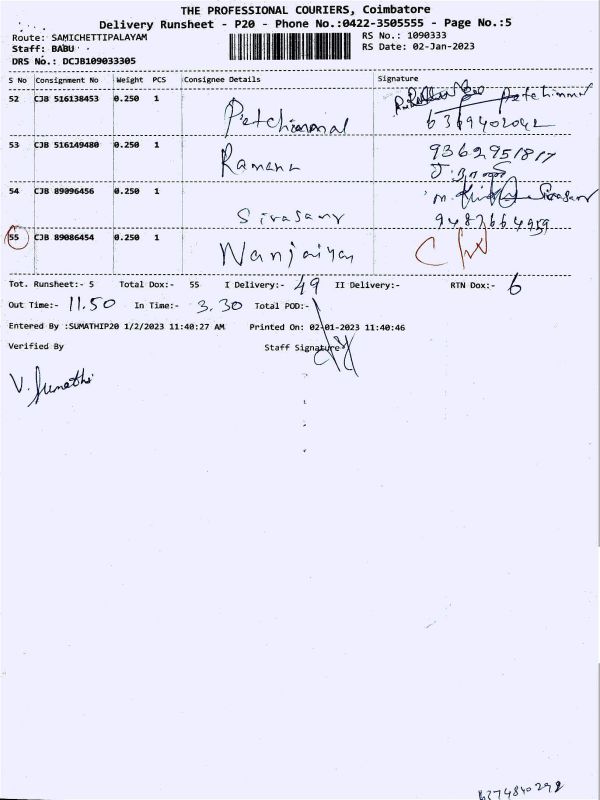 THE PROFESSIONAL COURIERS, Coimbatore
Delivery Runsheet - P20 - Phone No.:0422-3505555 - Page No.:5
Route: SAMICHETTIPALAYAM RS No.: 1090333
Staff: BABU RS Date: 02-Jan-2023
DRS No.: DCJB109033305
S No Consignment No Weight PCS Consignee Details Signature
52 CJB 516138453 0.250 1 Petchiammal Petchimmal
6369402042
53 CJB 516149480 0.250 1 Ramana 9362951817
54 CJB 89096456 0.250 1 Sivasamy M. Sivasamy
9487664959
55 CJB 89086454 0.250 1 Nanjaiyan
Tot. Runsheet:- 5 Total Dox:- 55 I Delivery:- 49 II Delivery:- RTN Dox:- 6
Out Time:- 11.50 In Time:- 3.30 Total POD:-
Entered By :SUMATHIP20 1/2/2023 11:40:27 AM Printed On: 02-01-2023 11:40:46
Verified By Staff Signature
V. Sumathi